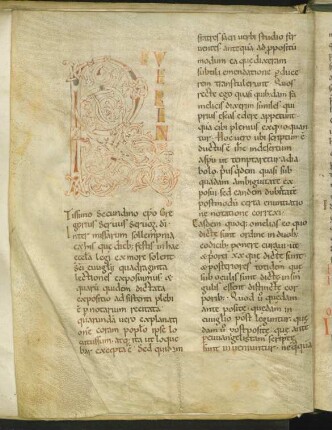 REVEREN
tissimo secundino epo gre
gorius servus servorū di
Inter missarum sollempnia
ex his que dieb; festis in hac
eccla legi ex more solent
sci evvglii quadraginta
lectiones exposuimus. et
quarūdam dictata
expositio adsistenti plebi
ē p notarium recitata
quarundā vero explanati
onē coram poplo ipse lo
cutus sum. atq; ita ut loque
bar excepta ē. Sed quidam
fratres sacri verbi studio fer
ventes. antequā ad ppositū
modum ea que dixeram
subtili emendatione pduce
rem transtulerunt. Quos
recte ego quasi quibusdam fa
melicis dixerim similes qui
prius escas edere appetunt
qua cibi plenius excoquan
tur. Hoc vero ubi scriptum ē
ductus ē ihs in desertum
a spū ut temptaretur a dia
bolo. prius quidem quasi sub
quadam ambiguitate ex
posui. sed eandem dubitati
postmodū certa enuntiatio
ne notatione correxi.
Easdem quoq; omelias eo quo
dictę sunt ordine in duob;
codicib; ponere curavi. ut
et priores xx que dictatę sunt
et posteriores totidem que
sub oculis sunt dictę in sin
gulis essent distinctę cor
porib;. Quod ū quedam
ante positę. quedam in
evvglio post leguntur. que
dam ū post positę. que ante
p evvangelistam scriptę
sunt inveniuntur. nequaqua